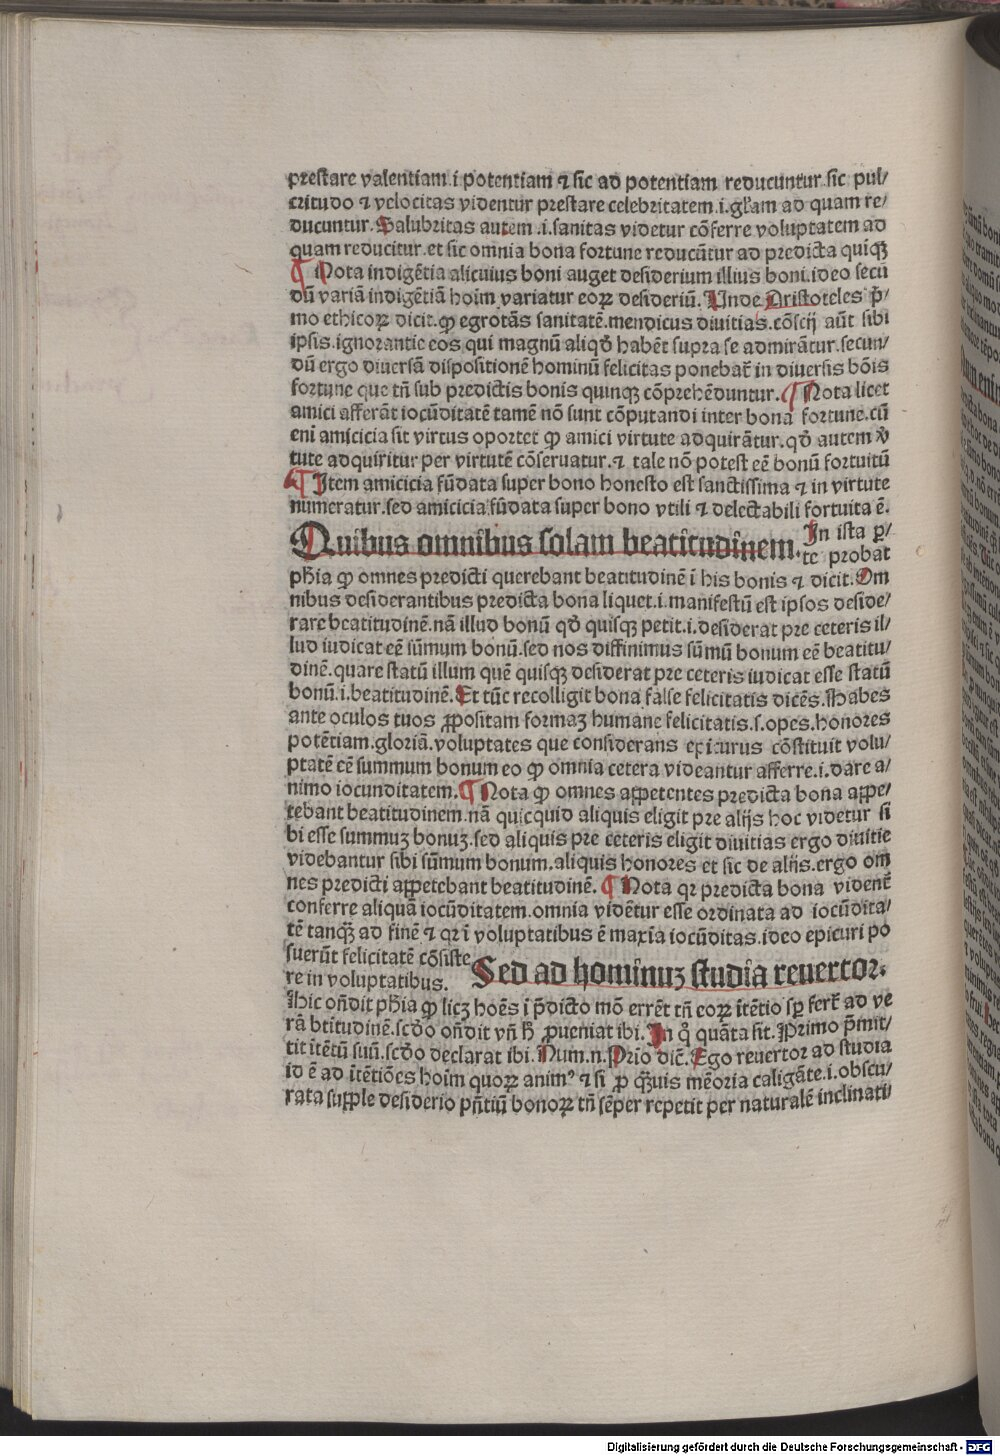 prestare valentiam.i.potentiam ⁊ sic ad potentiam reducuntur.sic pul/
critudo ⁊ velocitas videntur prestare celebritatem.i.gl̃am ad quam re/
ducuntur. Salubritas autem .i.sanitas videtur cõferre voluptatem ad
quam reducitur.et sic omnia bona fortune reducũtur ad predicta quiqꝫ
¶ Nota indigẽtia alicuius boni auget desiderium illius boni.ideo secũ
dũ variã indigẽtiã hoim̃ variatur eoꝝ desideriũ. Unde Aristoteles p̃/
mo ethicoꝝ dicit.ꝙ egrotãs sanitatẽ.mendicus diuitias.cõscij aũt sibi
ipsis.ignorantie eos qui magnũ aliqð habẽt supra se admirãtur.secun/
dũ ergo diuersã dispositionẽ hominũ felicitas ponebat̃ in diuersis bõis
fortune que tñ sub predictis bonis quinqꝫ cõprehẽduntur. ¶ Nota licet
amici afferãt iocũditatẽ tamẽ nõ sunt cõputandi inter bona fortune.cũ
eni̅ amicicia sit virtus oportet ꝙ amici virtute adquirãtur.qð autem v̾
tute adquiritur per virtutẽ cõseruatur.⁊ tale nõ potest eẽ bonũ fortuitũ
¶ Item amicicia fũdata super bono honesto est sanctissima ⁊ in virtute
numeratur.sed amicicia fũdata super bono vtili ⁊ delectabili fortuita ẽ.
Quibus omnibus solam beatitudinem. In ista ꝑ/
te probat
pħia ꝙ omnes predicti querebant beatitudinẽ i̅ his bonis ⁊ dicit. Om
nibus desiderantibus predicta bona liquet.i.manifestũ est ipsos deside/
rare beatitudinẽ.nã illud bonũ qð quisqꝫ petit.i.desiderat pre ceteris il/
lud iudicat eẽ sũmum bonũ.sed nos diffinimus sũmũ bonum eẽ beatitu/
dinẽ.quare statũ illum quẽ quisqꝫ desiderat pre ceteris iudicat esse statũ
bonũ.i.beatitudinẽ. Et tũc recolligit bona false felicitatis dicẽs. Habes
ante oculos tuos ꝓpositam formaꝫ humane felicitatis.s.opes.honores
potẽtiam.gloriã.voluptates que considerans epicurus cõstituit volu/
ptatẽ eẽ summum bonum eo ꝙ omnia cetera videantur afferre.i.dare a/
nimo iocunditatem. ¶ Nota ꝙ omnes appetentes predicta bona appe/
tebant beatitudinem.nã quicquid aliquis eligit pre alijs hoc videtur si
bi esse summuꝫ bonuꝫ.sed aliquis pre ceteris eligit diuitias ergo diuitie
videbantur sibi sũmum bonum.aliquis honores et sic de alijs.ergo om
nes predicti appetebant beatitudinẽ. ¶ Nota qꝛ predicta bona vident̃
conferre aliquã iocũditatem.omnia vidẽtur esse ordinata ad iocũdita/
tẽ tanqꝫ ad finẽ ⁊ qꝛ i̅ voluptatibus ẽ maxi̅a iocũditas.ideo epicuri po
suerũt felicitatẽ cõsiste
re in voluptatibus. Sed ad hominuꝫ studia reuertor.
Hic oñdit pħia ꝙ licꝫ hoẽs i̅ p̃dicto mõ errẽt tñ eoꝝ i̅tẽtio sꝑ fert̃ ad ve
rã btitudinẽ.scðo oñdit vñ h̃ ꝓueniat ibi. In q̊ quãta sit. Primo p̃mit/
tit i̅tẽtũ suũ.scðo declarat ibi. Num.n. Prĩo dic̃. Ego reuertor ad studia
id ẽ ad i̅tẽtiões hoim̃ quoꝝ animꝰ ⁊ si ꝑ qꝫuis mẽoria caligãte.i.obscu/
rata supple desiderio p̃ñtiũ bonoꝝ tñ sẽper repetit per naturalẽ inclinati/